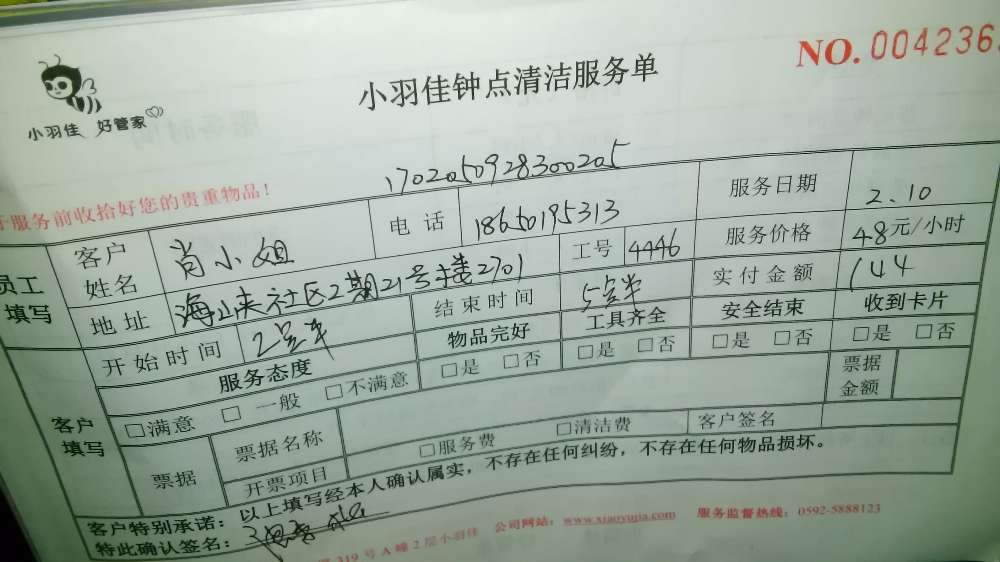 NO. 004236
小羽佳钟点清洁服务单
小羽佳 好管家
1702050928300205
于服务前收拾好您的贵重物品！
员工填写
客户姓名 肖小姐 电话 18650195313 服务日期 2.10
地址 海峡社区2期21号楼2701 工号 4446 服务价格 48元/小时
开始时间 2点半 结束时间 5点半 实付金额 144
客户填写
服务态度 物品完好 工具齐全 安全结束 收到卡片
□满意 □一般 □不满意 □是 □否 □是 □否 □是 □否 □是 □否
票据 票据名称 票据金额
开票项目 □服务费 □清洁费 客户签名
客户特别承诺：以上填写经本人确认属实，不存在任何纠纷，不存在任何物品损坏。
特此确认签名：
319号A幢2层小羽佳 公司网站：www.xiaoyujia.com 服务监督热线：0592-5888123